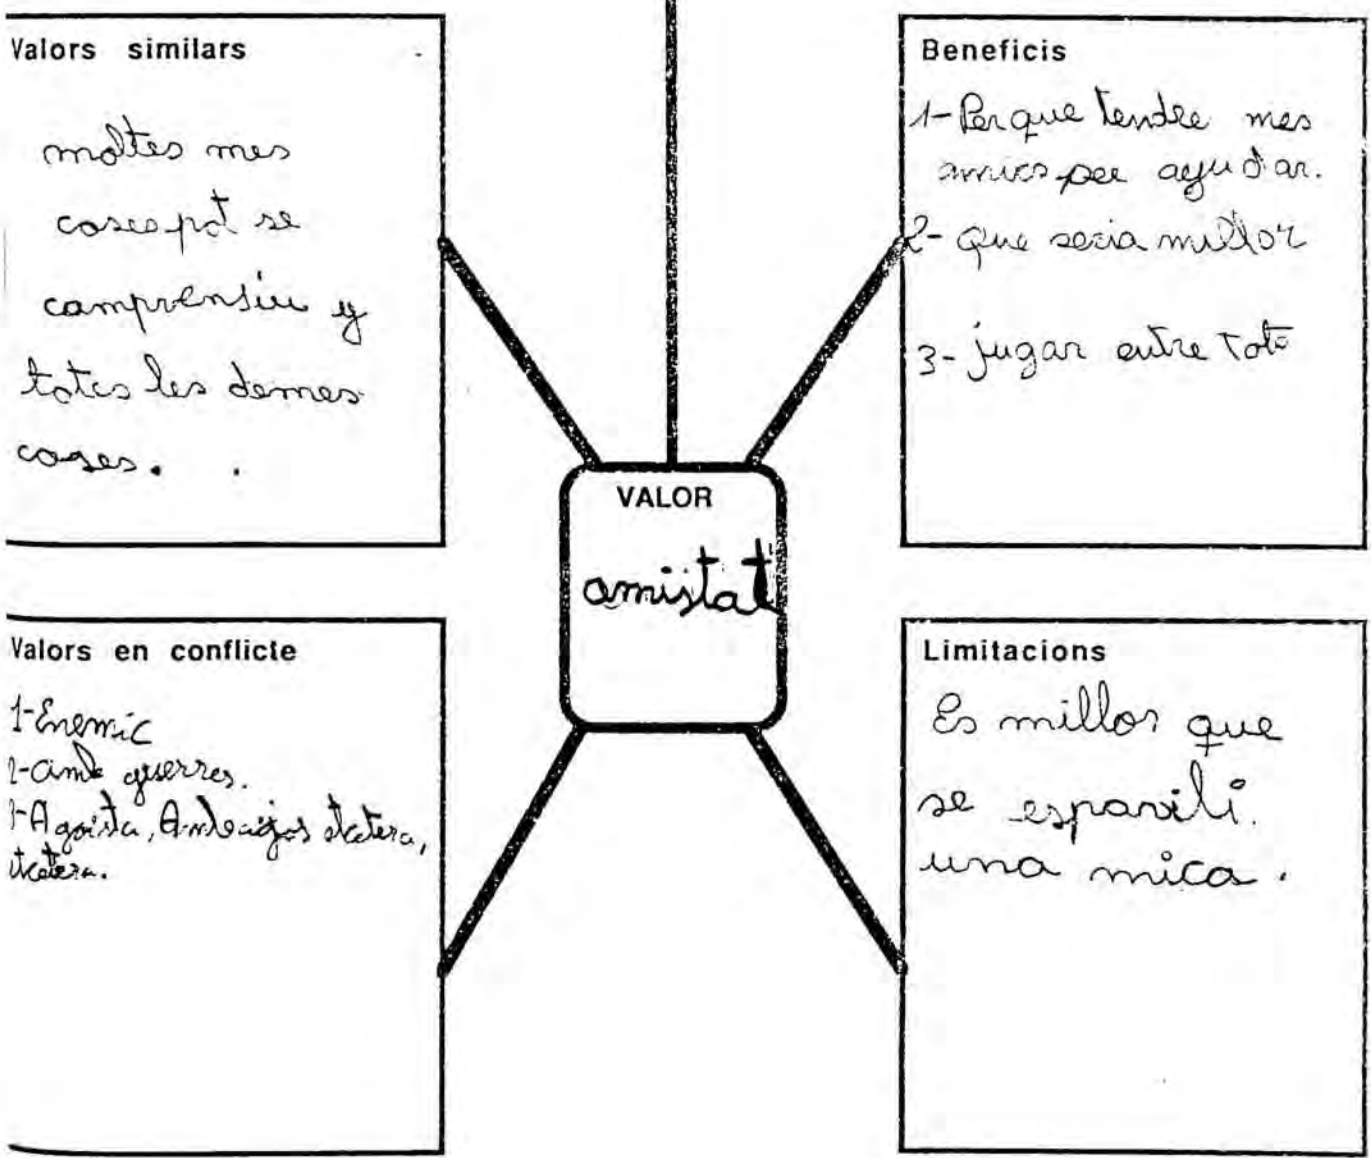 Valors similars
moltes mes
coses pot se
comprensiu y
totes les demes
coses.
Beneficis
1- Perque tendre mes
amics per ayudar.
2- que seria millor
3- jugar entre tots
VALOR
amistat
Valors en conflicte
1-Enemic
2-amb guerres.
3-Agoista, etcetera,
etcetera.
Limitacions
Es millor que
se espavili.
una mica.